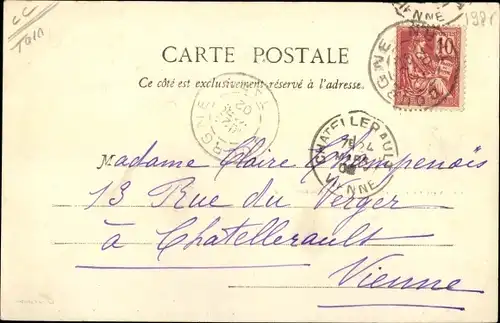 1985
CARTE POSTALE
Ce côté est exclusivement réservé à l'adresse.
10
CHATELLERAULT
VIENNE
Madame Claire Champenois
13 Rue du Verger
à Chatellerault
Vienne